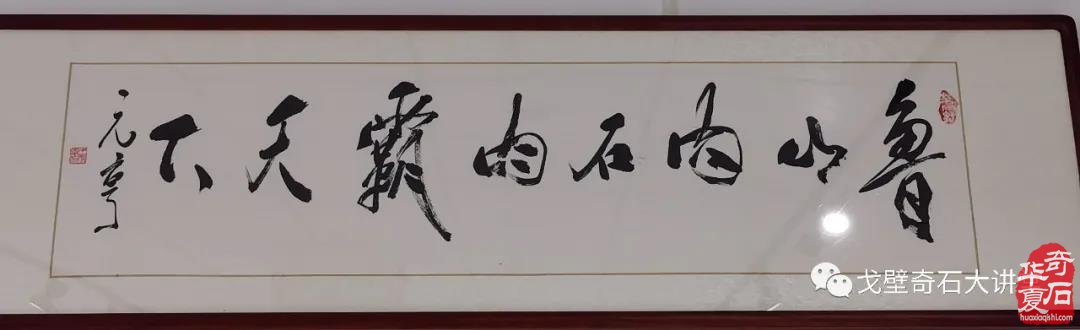 魯山肉石肉霸天下
元亨
戈壁奇石大讲
华夏奇石
huaxiaqishi.com